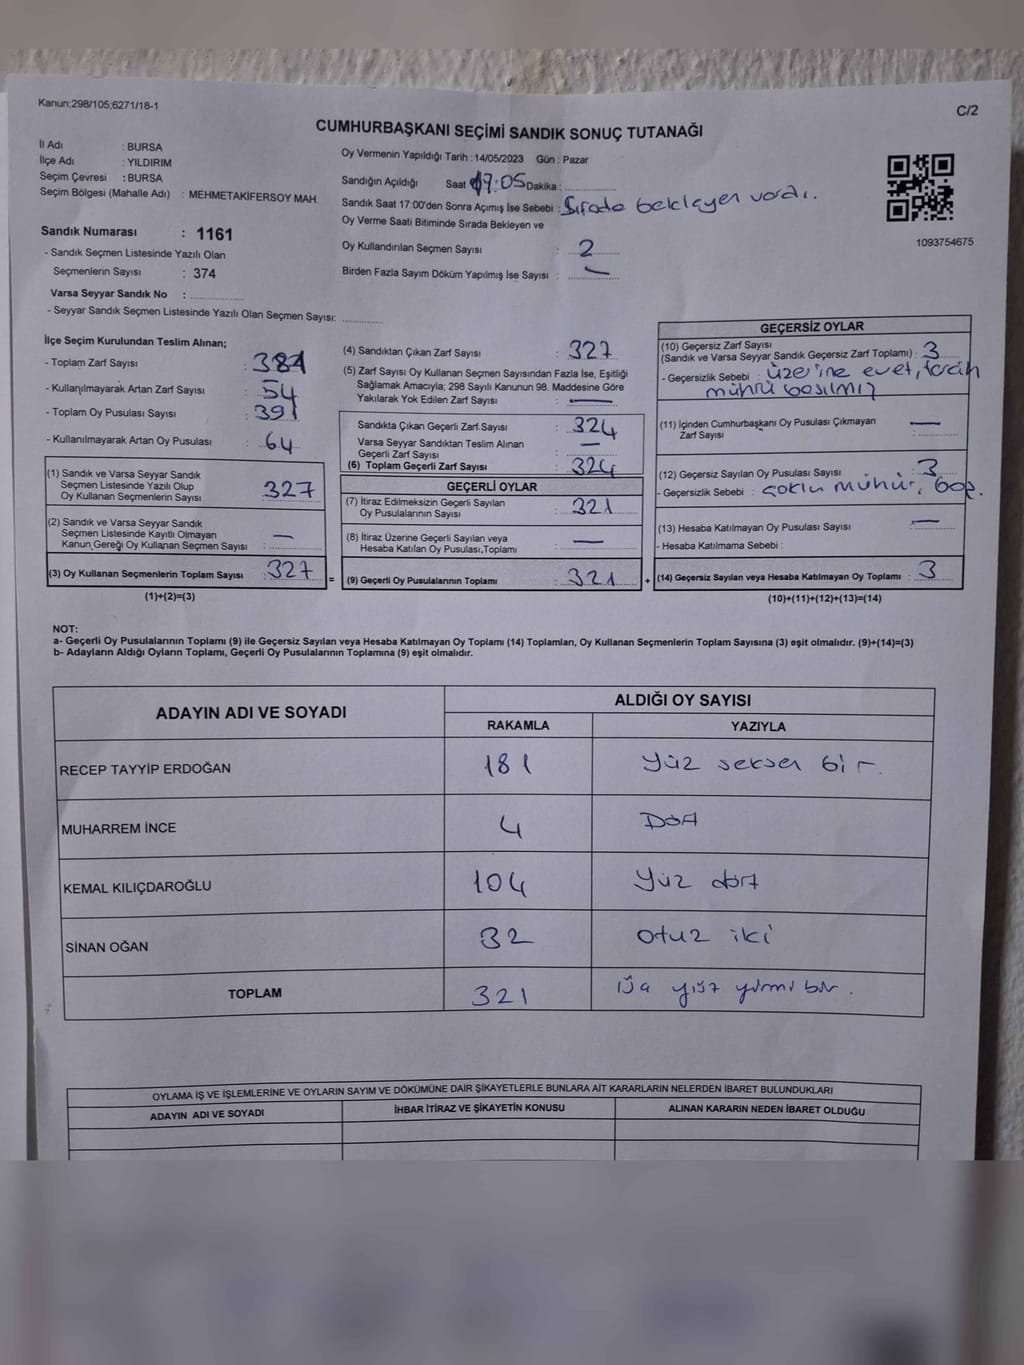 Kanun;298/105;6271/18-1
C/2
CUMHURBAŞKANI SEÇİMİ SANDIK SONUÇ TUTANAĞI
İl Adı : BURSA
İlçe Adı : YILDIRIM
Seçim Çevresi : BURSA
Seçim Bölgesi (Mahalle Adı) : MEHMETAKİFERSOY MAH.
Sandık Numarası : 1161
- Sandık Seçmen Listesinde Yazılı Olan
Seçmenlerin Sayısı : 374
Varsa Seyyar Sandık No : ................
- Seyyar Sandık Seçmen Listesinde Yazılı Olan Seçmen Sayısı: ............
Oy Vermenin Yapıldığı Tarih : 14/05/2023 Gün : Pazar
Sandığın Açıldığı Saat 17:05 Dakika : ................
Sandık Saat 17:00'den Sonra Açmış İse Sebebi : Sırada bekleyen vardı.
Oy Verme Saati Bitiminde Sırada Bekleyen ve
Oy Kullandırılan Seçmen Sayısı : 2
Birden Fazla Sayım Döküm Yapılmış İse Sayısı : —
1093754675
İlçe Seçim Kurulundan Teslim Alınan;
- Toplam Zarf Sayısı : 381
- Kullanılmayarak Artan Zarf Sayısı : 54
- Toplam Oy Pusulası Sayısı : 391
- Kullanılmayarak Artan Oy Pusulası : 64
(1) Sandık ve Varsa Seyyar Sandık
Seçmen Listesinde Yazılı Olup
Oy Kullanan Seçmenlerin Sayısı : 327
(2) Sandık ve Varsa Seyyar Sandık
Seçmen Listesinde Kayıtlı Olmayan
Kanun Gereği Oy Kullanan Seçmen Sayısı : —
(3) Oy Kullanan Seçmenlerin Toplam Sayısı : 327 =
(1)+(2)=(3)
(4) Sandıktan Çıkan Zarf Sayısı : 327
(5) Zarf Sayısı Oy Kullanan Seçmen Sayısından Fazla İse, Eşitliği
Sağlamak Amacıyla; 298 Sayılı Kanunun 98. Maddesine Göre
Yakılarak Yok Edilen Zarf Sayısı : —
Sandıkta Çıkan Geçerli Zarf Sayısı : 324
Varsa Seyyar Sandıktan Teslim Alınan
Geçerli Zarf Sayısı : —
(6) Toplam Geçerli Zarf Sayısı : 324
GEÇERLİ OYLAR
(7) İtiraz Edilmeksizin Geçerli Sayılan
Oy Pusulalarının Sayısı : 321
(8) İtiraz Üzerine Geçerli Sayılan veya
Hesaba Katılan Oy Pusulası,Toplamı : —
(9) Geçerli Oy Pusulalarının Toplamı : 321 +
GEÇERSİZ OYLAR
(10) Geçersiz Zarf Sayısı
(Sandık ve Varsa Seyyar Sandık Geçersiz Zarf Toplamı) : 3
- Geçersizlik Sebebi : üzerine evet, tercih
mührü basılmış
(11) İçinden Cumhurbaşkanı Oy Pusulası Çıkmayan
Zarf Sayısı : —
(12) Geçersiz Sayılan Oy Pusulası Sayısı : 3
- Geçersizlik Sebebi : çoklu mühür, boş.
(13) Hesaba Katılmayan Oy Pusulası Sayısı : —
- Hesaba Katılmama Sebebi :
(14) Geçersiz Sayılan veya Hesaba Katılmayan Oy Toplamı : 3
(10)+(11)+(12)+(13)=(14)
NOT:
a- Geçerli Oy Pusulalarının Toplamı (9) ile Geçersiz Sayılan veya Hesaba Katılmayan Oy Toplamı (14) Toplamları, Oy Kullanan Seçmenlerin Toplam Sayısına (3) eşit olmalıdır. (9)+(14)=(3)
b- Adayların Aldığı Oyların Toplamı, Geçerli Oy Pusulalarının Toplamına (9) eşit olmalıdır.
ADAYIN ADI VE SOYADI
ALDIĞI OY SAYISI
RAKAMLA YAZIYLA
RECEP TAYYİP ERDOĞAN 181 Yüz seksen bir.
MUHARREM İNCE 4 Dört
KEMAL KILIÇDAROĞLU 104 Yüz dört
SİNAN OĞAN 32 otuz iki
TOPLAM 321 üç yüz yirmi bir.
OYLAMA İŞ VE İŞLEMLERİNE VE OYLARIN SAYIM VE DÖKÜMÜNE DAİR ŞİKAYETLERLE BUNLARA AİT KARARLARIN NELERDEN İBARET BULUNDUKLARI
ADAYIN ADI VE SOYADI İHBAR İTİRAZ VE ŞİKAYETİN KONUSU ALINAN KARARIN NEDEN İBARET OLDUĞU